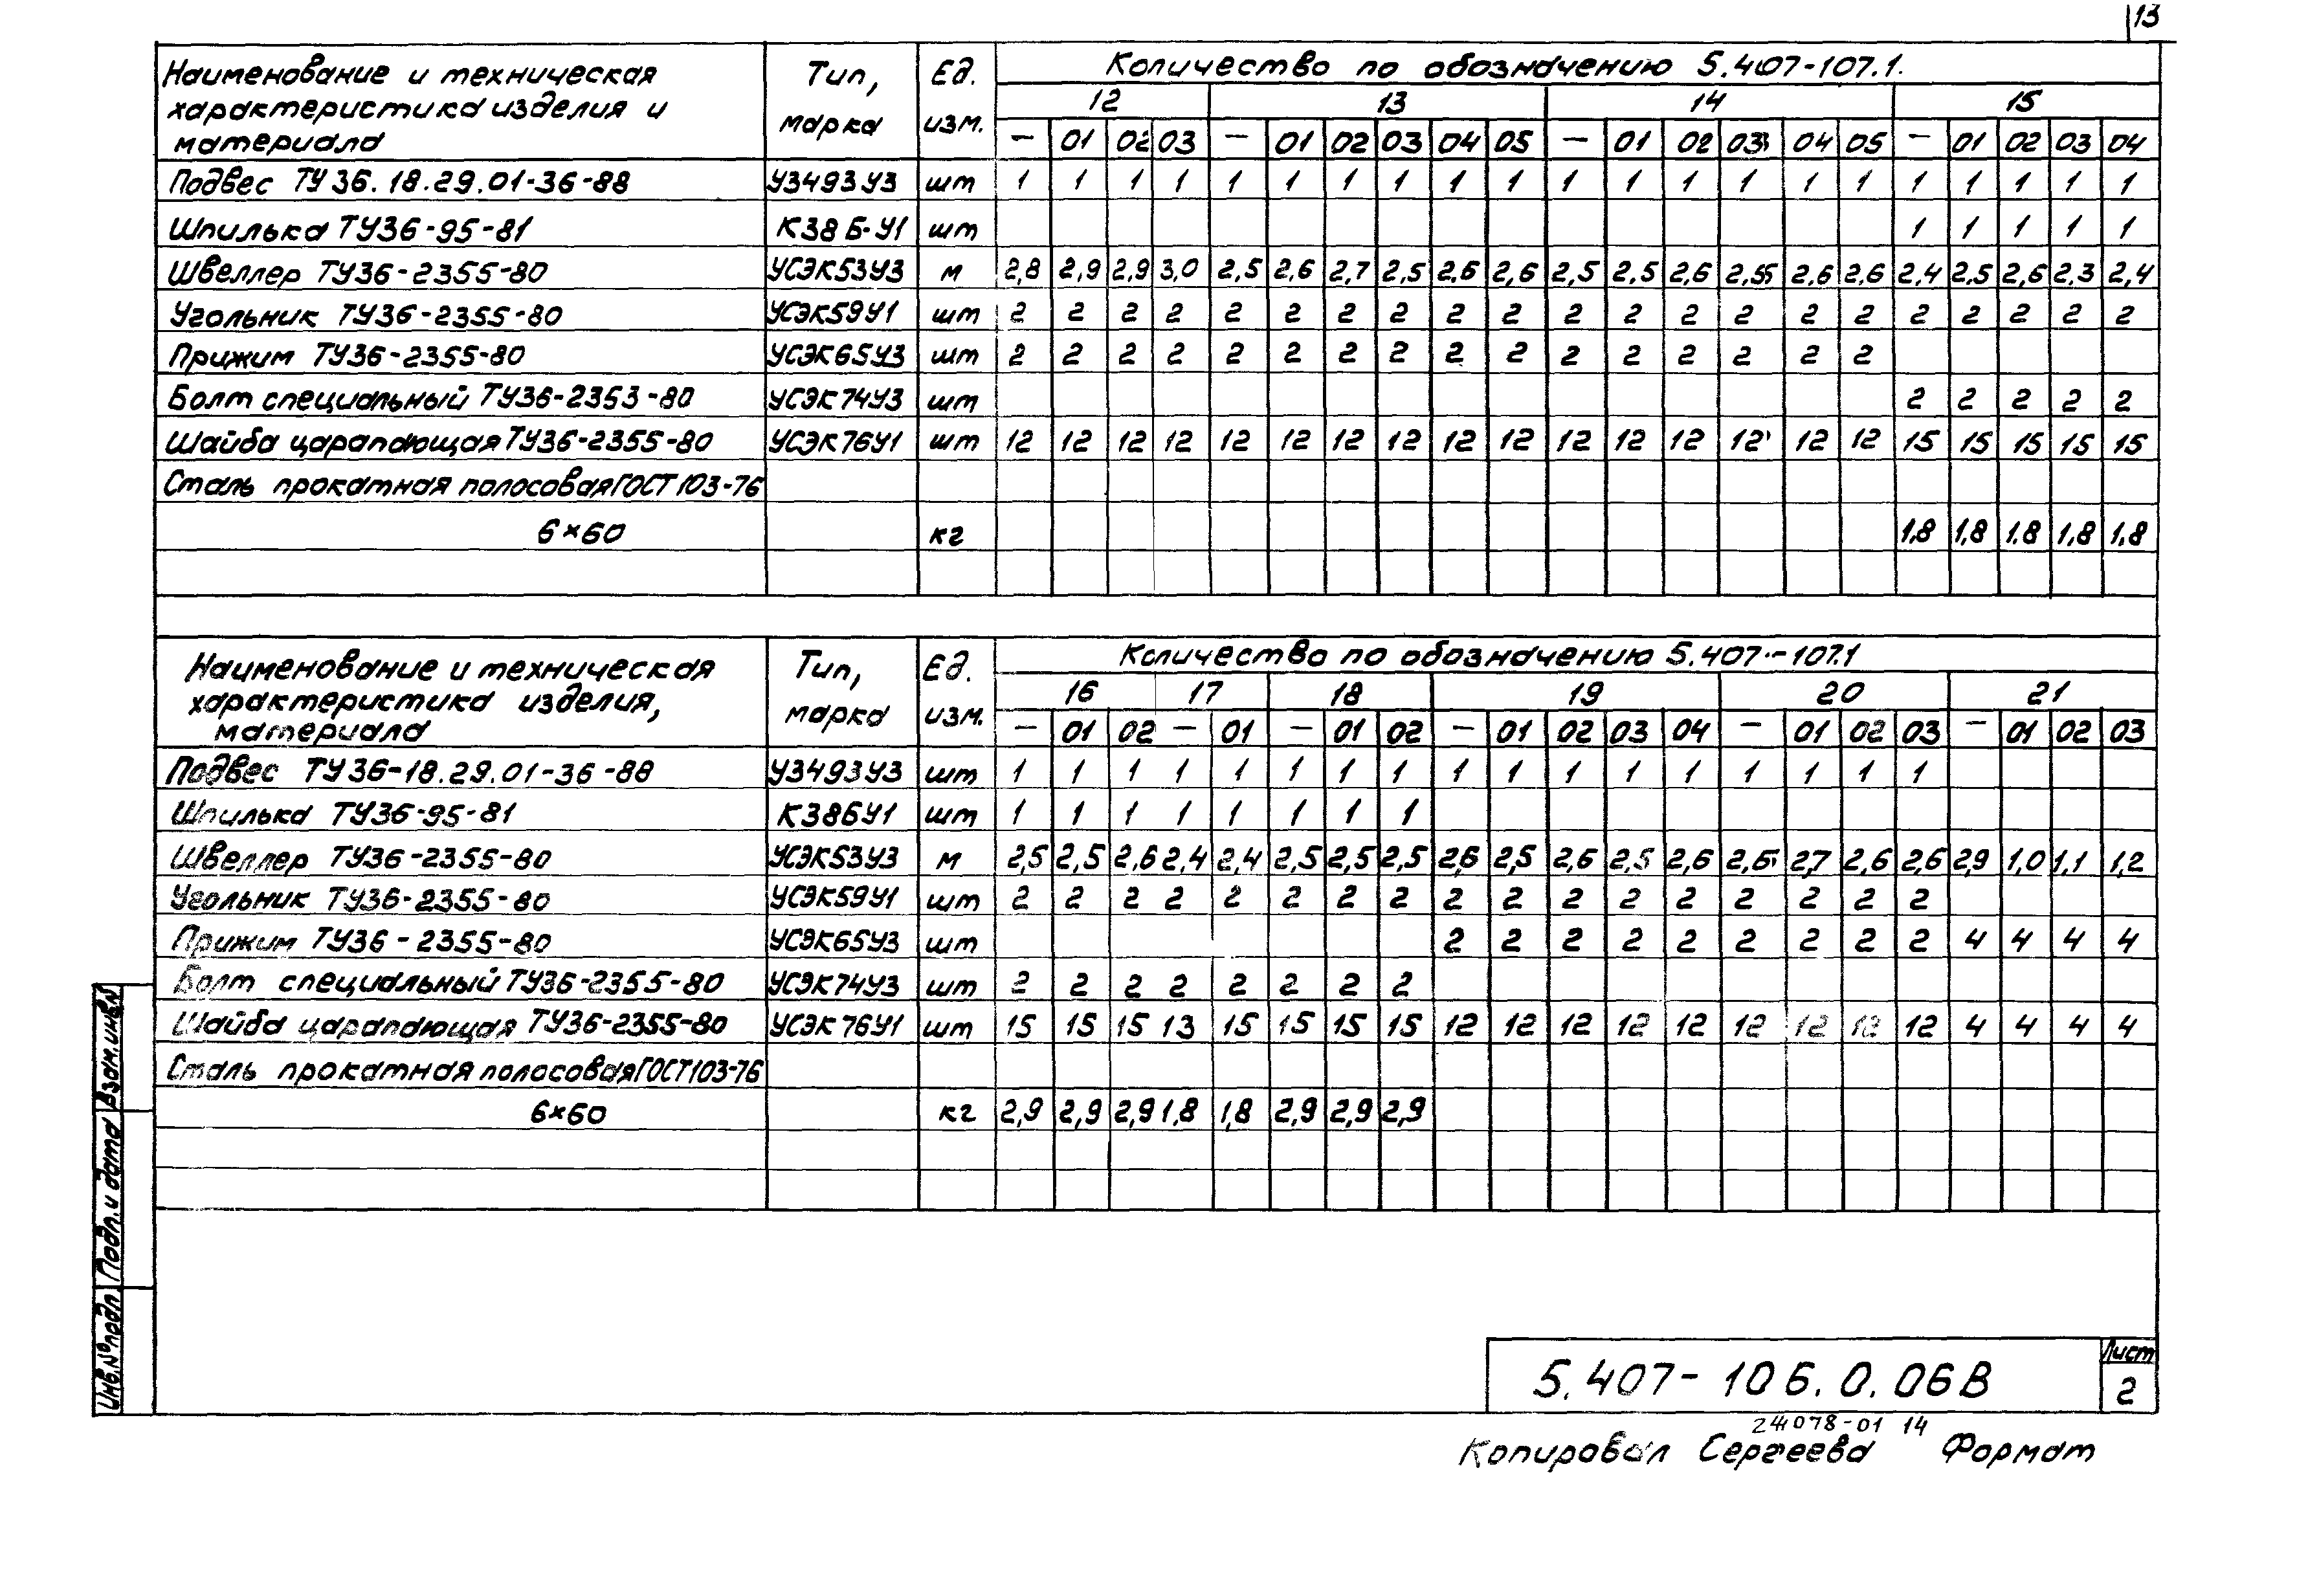 13
Наименование и техническая характеристика изделия и материала Тип, марка Ед. изм. Количество по обозначению 5.407-107.1.
12 13 14 15
— 01 02 03 — 01 02 03 04 05 — 01 02 03 04 05 — 01 02 03 04
Подвес ТУ 36.18.29.01-36-88 У3493У3 шт 1 1 1 1 1 1 1 1 1 1 1 1 1 1 1 1 1 1 1 1 1
Шпилька ТУ36-95-81 К38Б-У1 шт 1 1 1 1 1
Швеллер ТУ36-2355-80 УСЭК53У3 м 2,8 2,9 2,9 3,0 2,5 2,6 2,7 2,5 2,6 2,6 2,5 2,5 2,6 2,5 2,6 2,6 2,4 2,5 2,6 2,3 2,4
Угольник ТУ36-2355-80 УСЭК59У1 шт 2 2 2 2 2 2 2 2 2 2 2 2 2 2 2 2 2 2 2 2 2
Прижим ТУ36-2355-80 УСЭК65У3 шт 2 2 2 2 2 2 2 2 2 2 2 2 2 2 2 2
Болт специальный ТУ36-2353-80 УСЭК74У3 шт 2 2 2 2 2
Шайба царапающая ТУ36-2355-80 УСЭК76У1 шт 12 12 12 12 12 12 12 12 12 12 12 12 12 12 12 12 15 15 15 15 15
Сталь прокатная полосовая ГОСТ 103-76
6×60 кг 1,8 1,8 1,8 1,8 1,8
Наименование и техническая характеристика изделия, материала Тип, марка Ед. изм. Количество по обозначению 5.407-107.1
16 17 18 19 20 21
— 01 02 — 01 — 01 02 — 01 02 03 04 — 01 02 03 — 01 02 03
Подвес ТУ 36-18.29.01-36-88 У3493У3 шт 1 1 1 1 1 1 1 1 1 1 1 1 1 1 1 1 1
Шпилька ТУ36-95-81 К38БУ1 шт 1 1 1 1 1 1 1 1
Швеллер ТУ36-2355-80 УСЭК53У3 м 2,5 2,5 2,6 2,4 2,4 2,5 2,5 2,5 2,6 2,5 2,6 2,5 2,6 2,6 2,7 2,6 2,6 2,9 1,0 1,1 1,2
Угольник ТУ36-2355-80 УСЭК59У1 шт 2 2 2 2 2 2 2 2 2 2 2 2 2 2 2 2 2
Прижим ТУ36-2355-80 УСЭК65У3 шт 2 2 2 2 2 2 2 2 2 4 4 4 4
Болт специальный ТУ36-2355-80 УСЭК74У3 шт 2 2 2 2 2 2 2 2
Шайба царапающая ТУ36-2355-80 УСЭК76У1 шт 15 15 15 13 15 15 15 15 12 12 12 12 12 12 12 12 12 4 4 4 4
Сталь прокатная полосовая ГОСТ 103-76
6×60 кг 2,9 2,9 2,9 1,8 1,8 2,9 2,9 2,9
Инв.№подл Подп. и дата Взам.инв.№
5.407-106.0.06В
Лист
2
24078-01 14
Копировал Сергеева Формат